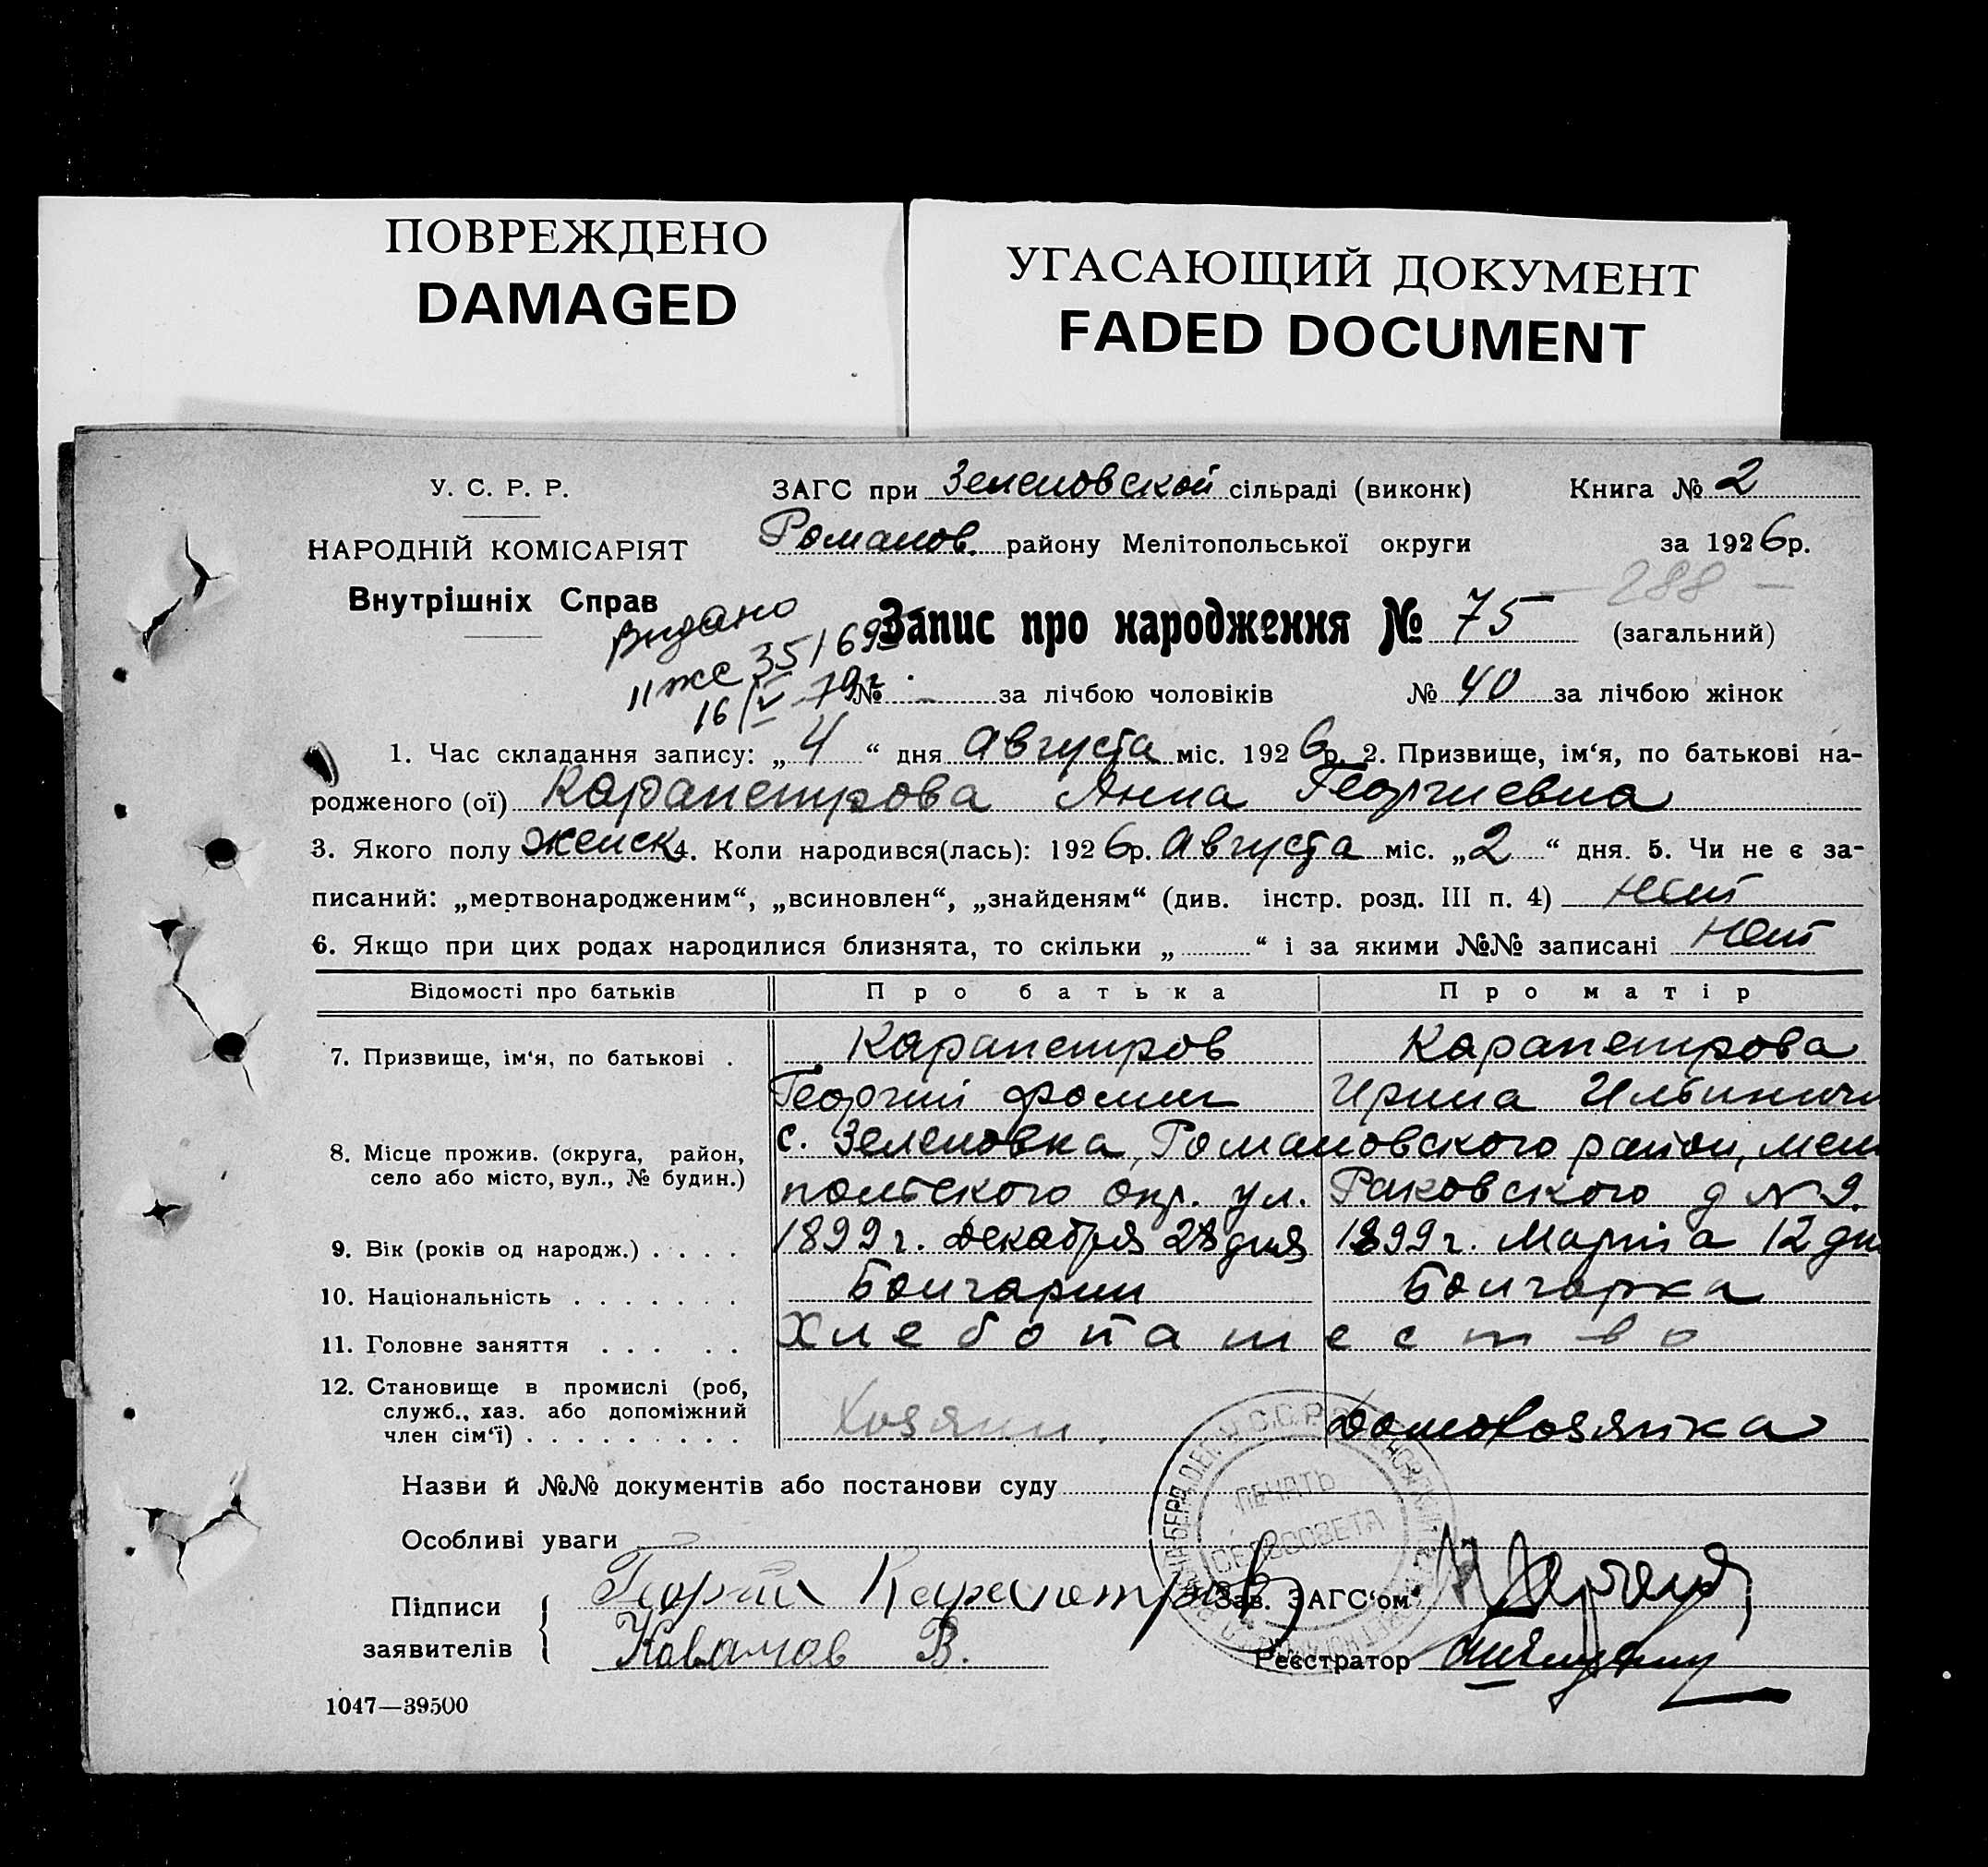 ПОВРЕЖДЕНО
DAMAGED
УГАСАЮЩИЙ ДОКУМЕНТ
FADED DOCUMENT
У. С. Р. Р.
НАРОДНІЙ КОМІСАРІЯТ
Внутрішніх Справ
ЗАГС при Зеленовской сільраді (виконк) Книга № 2
Романов. району Мелітопольської округи за 1926р.
288 —
Видано
II ЖС 35169
16/V-79г.
Запис про народження № 75 (загальний)
№ - за лічбою чоловіків № 40 за лічбою жінок
1. Час складання запису: „4“ дня Августа міс. 1926р. 2. Призвище, ім‘я, по батькові на-
родженого (ої) Карапетрова Анна Георгиевна
3. Якого полу женск 4. Коли народився(лась): 1926р. Августа міс. „2“ дня. 5. Чи не є за-
писаний: „мертвонародженим“, „всиновлен“, „знайденям“ (див. інстр. розд. III п. 4) Нет
6. Якщо при цих родах народилися близнята, то скільки „ “ і за якими №№ записані Нет
Відомості про батьків Про батька Про матір
7. Призвище, ім‘я, по батькові . Карапетров Карапетрова
Георгий Фомич Ирина Ильинична
8. Місце прожив. (округа, район, с. Зеленовка, Романовского район, мели
село або місто, вул., № будин.) польского окр. ул. Раковского д №9.
9. Вік (років од народж.) . . . . 1899г. Декабря 28 дня 1899г. Марта 12 дн
10. Національність . . . . . . . Болгарин Болгарка
11. Головне заняття . . . . . Хлебопашество
12. Становище в промислі (роб,
служб., хаз. або допоміжний
член сім‘ї) . . . . . . . . . Хозяин. Домохозяйка
Назви й №№ документів або постанови суду
Особливі уваги
ПЕЧАТЬ
СЕЛЬСОВЕТА
Підписи
заявителів
Георгий Карапетров
Ковачов В.
Зав. ЗАГС‘ом
Реєстратор
1047—39500